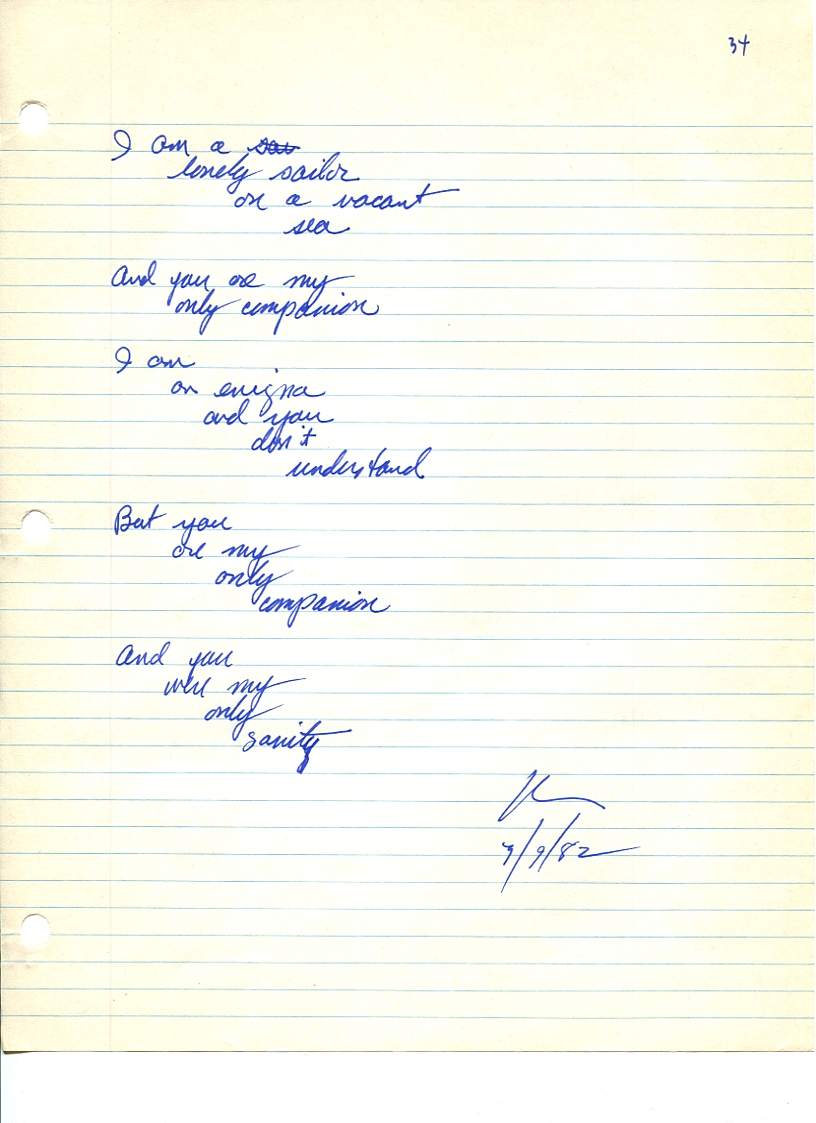 34
I am a
lonely sailor
on a vacant
sea
And you are my
only companion
I am
an enigma
and you
don't
understand
But you
are my
only
companion
And you
were my
only
sanity